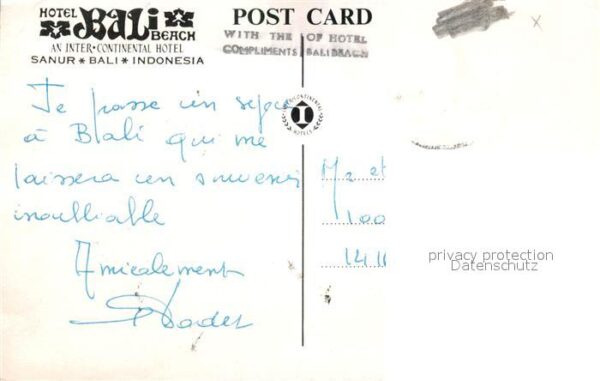 HOTEL
BALI
BEACH
AN INTER·CONTINENTAL HOTEL
SANUR * BALI * INDONESIA
POST CARD
WITH THE OF HOTEL
COMPLIMENTS BALI BEACH
INTERCONTINENTAL
I
HOTELS
Je passe un séjour
à Bali qui me
laissera un souvenir
inoubliable
Amicalement
Mr et
100
privacy protection
Datenschutz